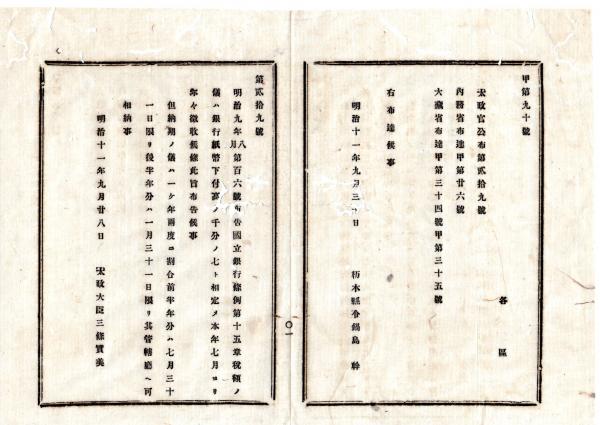 甲第九十號
各區
太政官公布第貳拾九號
內務省布達甲第廿六號
大藏省布達甲第三十四號甲第三十五號
右布達候事
明治十一年九月三十日 栃木縣令鍋島 幹
第貳拾九號
明治九年八月第百六號布告國立銀行條例第十五章稅額ノ
儀ハ銀行紙幣下付高ノ千分ノ七ト相定メ本年七月ヨリ
年々徵收候條此旨布告候事
但納期ノ儀ハ一ケ年兩度ニ割合前半年分ハ七月三十
一日限リ後半年分ハ一月三十一日限リ其管轄廳ヘ可
相納事
明治十一年九月廿八日 太政大臣三條實美